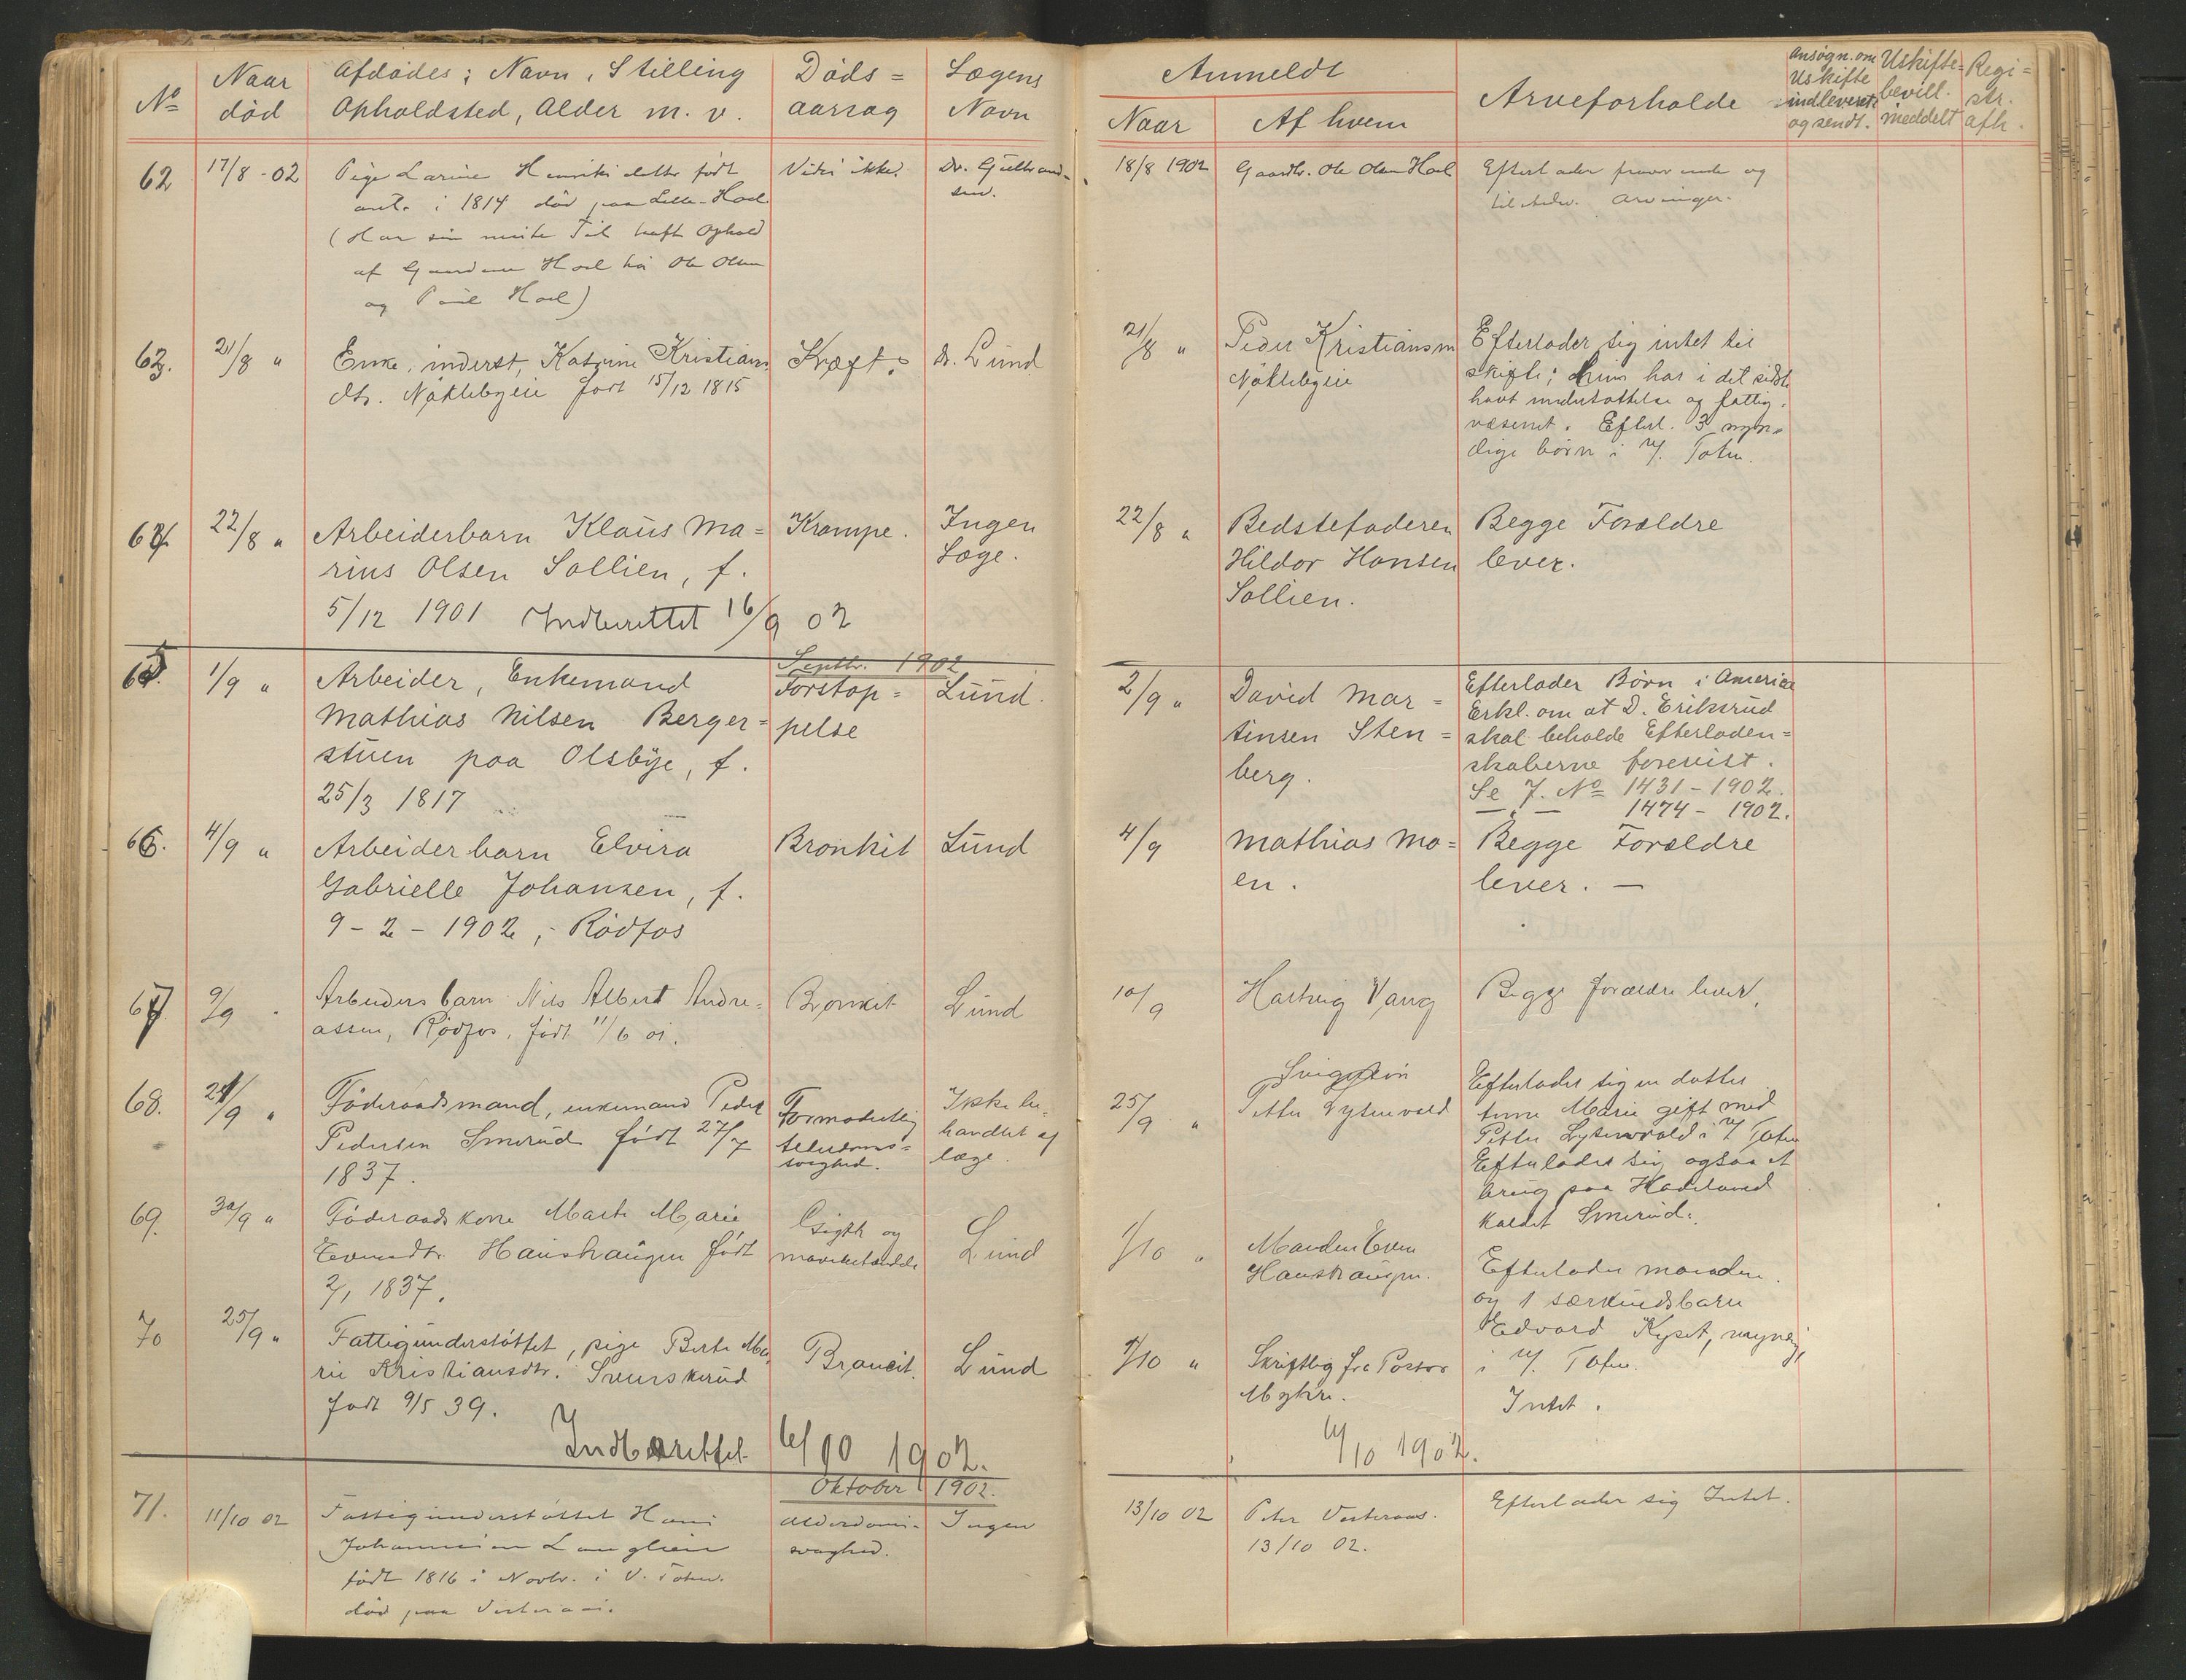 No
Naar
død
Afdødes; Navn, Stilling
Opholdsted, Alder m. v.
Døds=
aarsag
Lægens
Navn
Anmeldt
Naar
Af hvem
Arveforholde
Ansøgn. om
Uskifte
indleveret
og sendt.
Uskifte=
bevill.
meddelt
Regi=
str.
afh.
62
17/8 - 02
Pige Larine Henriksdatter født
ant. i 1814 død paa Lille-Hoel.
(Har sin meste Tid havt Ophold
af Gaardene Hoel hos Ole Olsen
og Paul Hoel)
Vides ikke.
Dr. Gulbrand=
sen.
18/8 1902
Gaardbr. Ole Olsen Hoel
Efterlader fraværende og
tilstedev. Arvinger.
63.
21/8 "
Enke, inderst, Katrine Kristians
dtr. Nøklebyeie født 15/12 1815
Kræft.
dr. Lund
21/8 "
Peder Kristiansen
Nøklebyeie
Efterlader sig intet til
skifte; hun har i det sidste
havt understøttelse af fattig-
væsenet. Efterl. 3 myn=
dige børn i V. Toten.
64.
22/8 "
Arbeiderbarn Klaus Ma=
rius Olsen Sollien, f.
5/12 1901 Indberettet 16/9 02
Krampe.
Ingen
Læge.
22/8 "
Bedstefaderen
Hildor Hansen
Sollien.
Begge Forældre
lever.
Septbr. 1902
65.
1/9 "
Arbeider, Enkemand
Mathias Nilsen Berger=
stuen paa Olsbye, f.
25/3 1817
Forstop=
pelse
Lund.
2/9 "
David Mar=
tinsen Sten=
berg.
Efterlader Børn i America
Erkl. om at D. Eriksrud
skal beholde Efterladen=
skaberne forevist.
Se J. No 1431 - 1902.
— " — 1474 - 1902.
66.
4/9 "
Arbeiderbarn Elvira
Gabrielle Johansen, f.
9 - 2 - 1902, - Rødfos
Bronkit
Lund
4/9
Mathias Mo=
en.
Begge Forældre
lever. —
67
9/9 "
Arbeiders barn Nils Albert Andre=
assen, Rødfos, født 11/6 01.
Bronkit
Lund
10/9
Hartvig Vang
Begge forældre lever.
68.
24/9 "
Føderaadsmand, enkemand Peder
Pedersen Smerud født 27/7
1837.
Formodentlig
alderdoms=
svaghed.
Ikke be-
handlet af
læge.
25/9 "
Svigersøn
Petter Lysenvold
Efterlader sig en datter
Marie gift med
Petter Lysenvold i V. Toten
Efterlader sig ogsaa et
brug paa Hadeland
kaldet Smerud.
69.
30/9 "
Føderaadskone Marte Marie
Evensdtr. Haushaugen født
2/1 1837.
Gigt og
Lund
1/10 "
Manden Even
Haushaugen.
Efterlader manden
og 1 særkuldsbarn
Edvard Kyset, myndig,
i V. Toten.
70
25/9 "
Fattigunderstøttet, pige Berte Ma
rie Kristiansdtr. Svenskerud
født 9/5 39.
Broncit.
Lund
4/10 "
Skriftlig fra Pastor
Myhre.
Intet.
Indberettet 6/10 1902.
6/10 1902.
Oktober 1902.
71.
11/10 02
Fattigunderstøttet Hans
Johannesen Langlien
født 1816 i Novbr. i V. Toten.
død paa Vesteraas.
Alderdoms-
svaghed.
Ingen
13/10 02
Peter Vesteraas.
13/10 02.
Efterlader sig Intet.